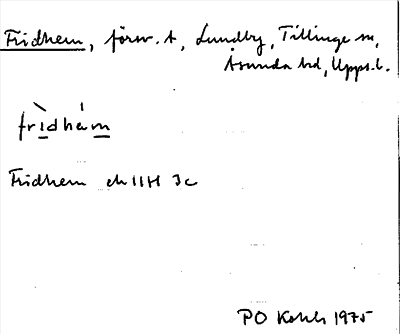 Fridhem, försv. t, Lundby, Tillinge sn,
Åsunda hd, Upps.l.
fri̱dhem̱
Fridhem ek 11H 3c
PO Kohls 1975